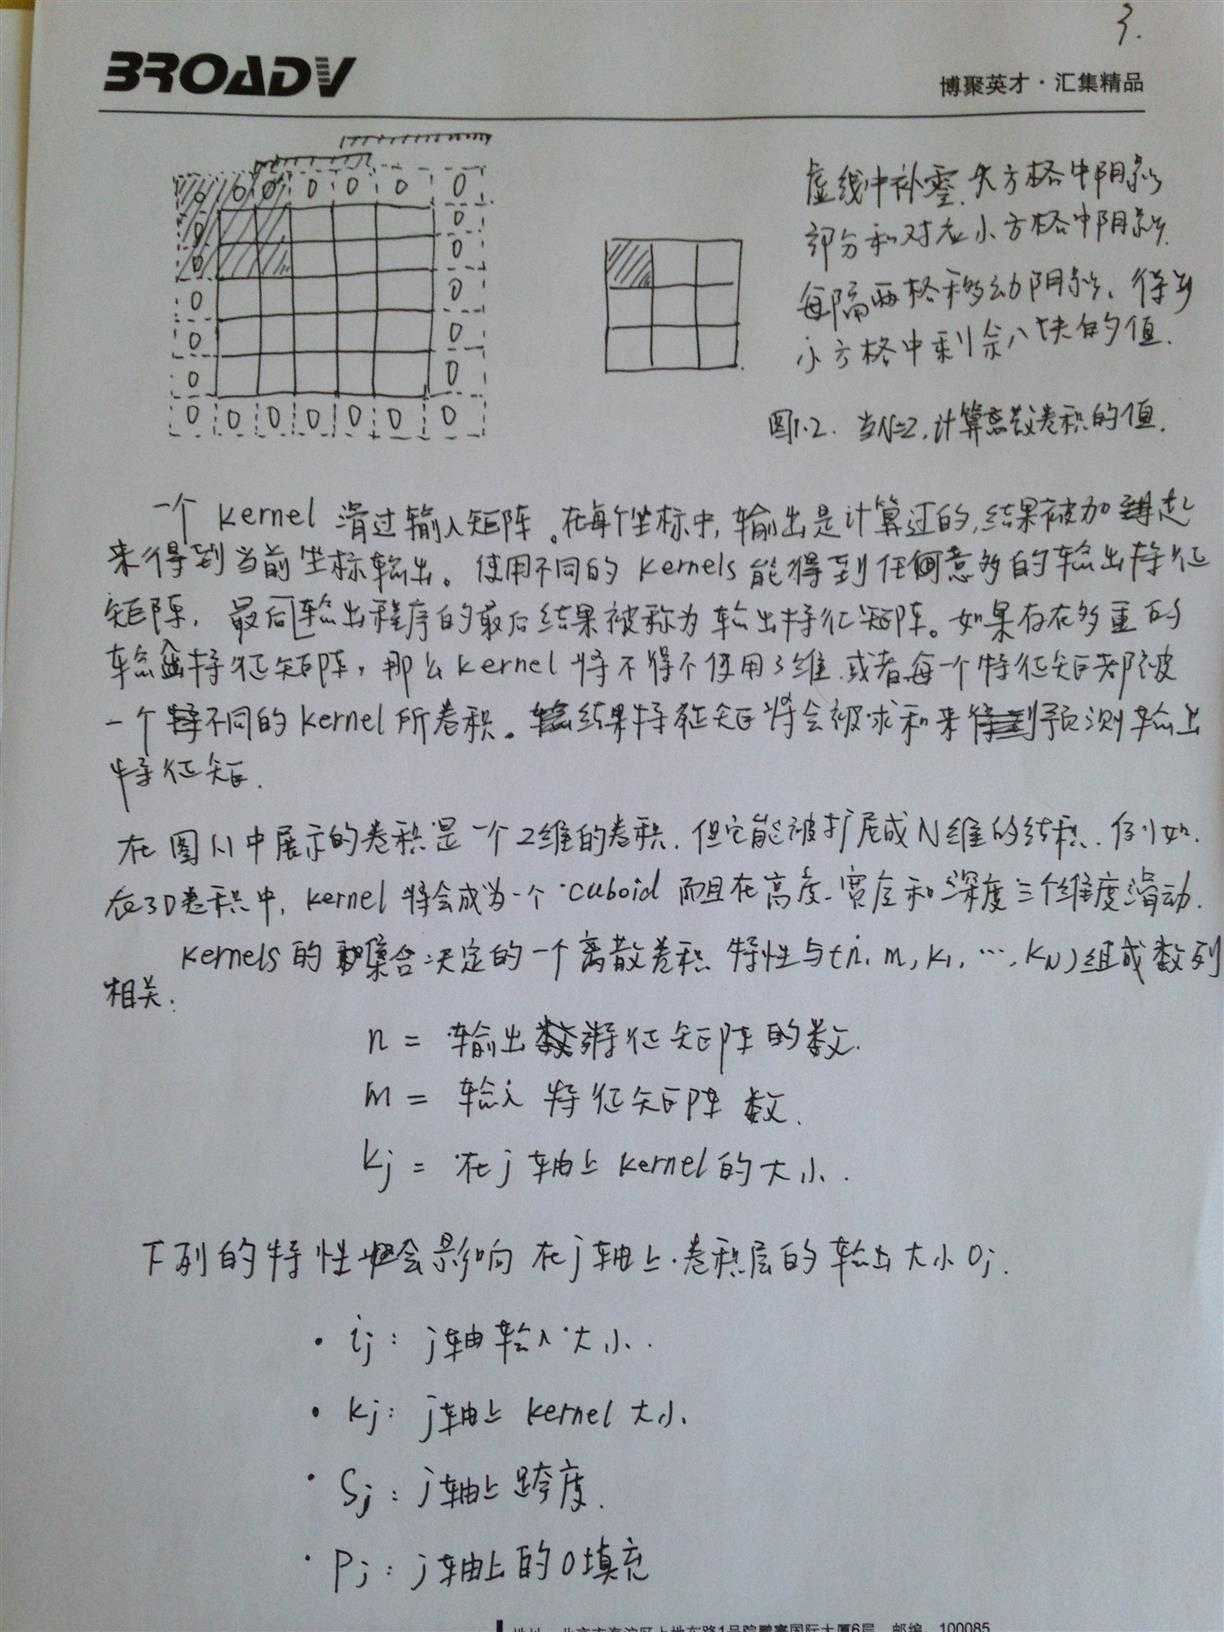 3.
BROADV
博聚英才·汇集精品
0 0 0 0 0 0 0
0 0
0 0
0 0
0 0
0 0
0 0 0 0 0 0 0
虚线中补零.大方格中阴影
部分和对应小方格中阴影.
每隔两格移动阴影、得到
小方格中剩余八块的值.
图1.2. 当N=2,计算离散卷积的值.
一个 kernel 滑过输入矩阵。在每个坐标中,输出是计算过的,结果被加起
来得到当前坐标输出。使用不同的 kernels 能得到任何意多的输出特征
矩阵, 最后输出程序的最后结果被称为 输出特征矩阵。如果存在多重的
输入特征矩阵,那么 kernel 将不得不使用3维.或者每一个特征矩都被
一个不同的 kernel 所卷积。结果特征矩将会被求和来预测输出
特征矩.
在图1.1中展示的卷积是一个2维的卷积.但它能被扩展成N维的结积.例如.
在3D卷积中, kernel 将会成为一个 cuboid 而且在高度、宽度和深度三个维度滑动.
kernels 的集合决定的一个离散卷积 特性与(n, m, k1, …, kN)组成数列
相关:
n = 输出特征矩阵的数.
m = 输入 特征矩阵 数.
kj = 在j轴上 kernel 的大小.
下列的特性会影响 在j轴上卷积层的输出大小 Oj.
• ij: j轴输入大小.
• kj: j轴上 kernel 大小.
• Sj: j轴上跨度.
• Pj: j轴上的0填充